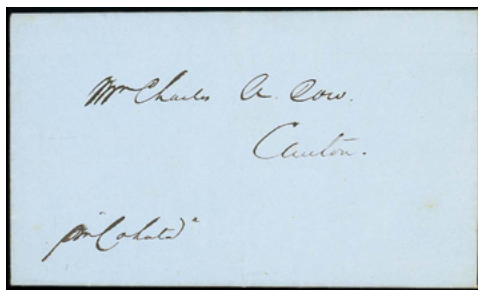 Mr Charles A. Low.
Canton.
per "Cohota"